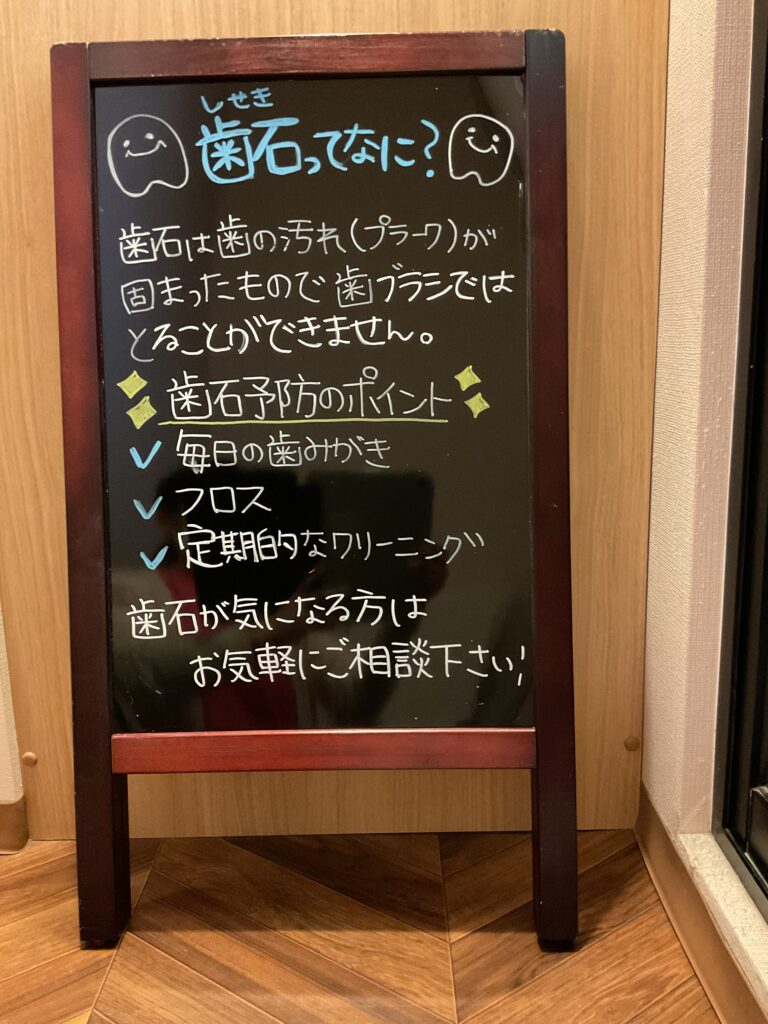 しせき
歯石ってなに?
歯石は歯の汚れ(プラーク)が
固まったもので歯ブラシでは
とることができません。
歯石予防のポイント
毎日の歯みがき
フロス
定期的なクリーニング
歯石が気になる方は
お気軽にご相談下さい!